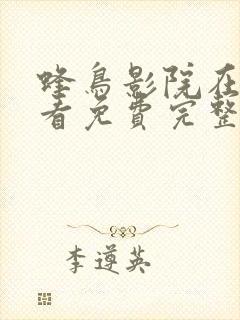 蜂鳥影院在
看免費完整
李遵英